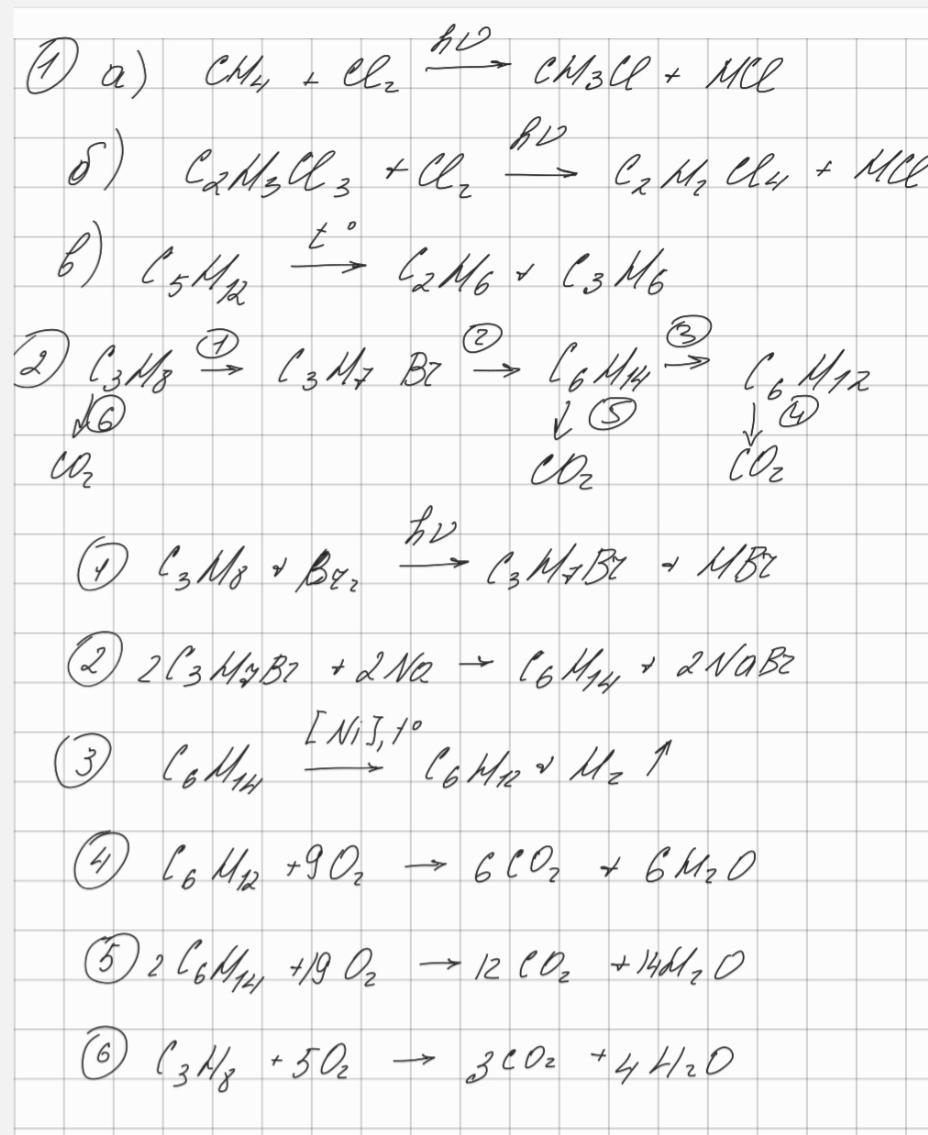 ① а) CH₄ + Cl₂ —hν→ CH₃Cl + HCl
б) C₂H₃Cl₃ + Cl₂ —hν→ C₂H₂Cl₄ + HCl
в) C₅H₁₂ —t°→ C₂H₆ + C₃H₆
② C₃H₈ —①→ C₃H₇Br —②→ C₆H₁₄ —③→ C₆H₁₂
↓⑥ ↓⑤ ↓④
CO₂ CO₂ CO₂
① C₃H₈ + Br₂ —hν→ C₃H₇Br + HBr
② 2C₃H₇Br + 2Na → C₆H₁₄ + 2NaBr
③ C₆H₁₄ —[Ni], t°→ C₆H₁₂ + H₂↑
④ C₆H₁₂ + 9O₂ → 6CO₂ + 6H₂O
⑤ 2C₆H₁₄ + 19O₂ → 12CO₂ + 14H₂O
⑥ C₃H₈ + 5O₂ → 3CO₂ + 4H₂O